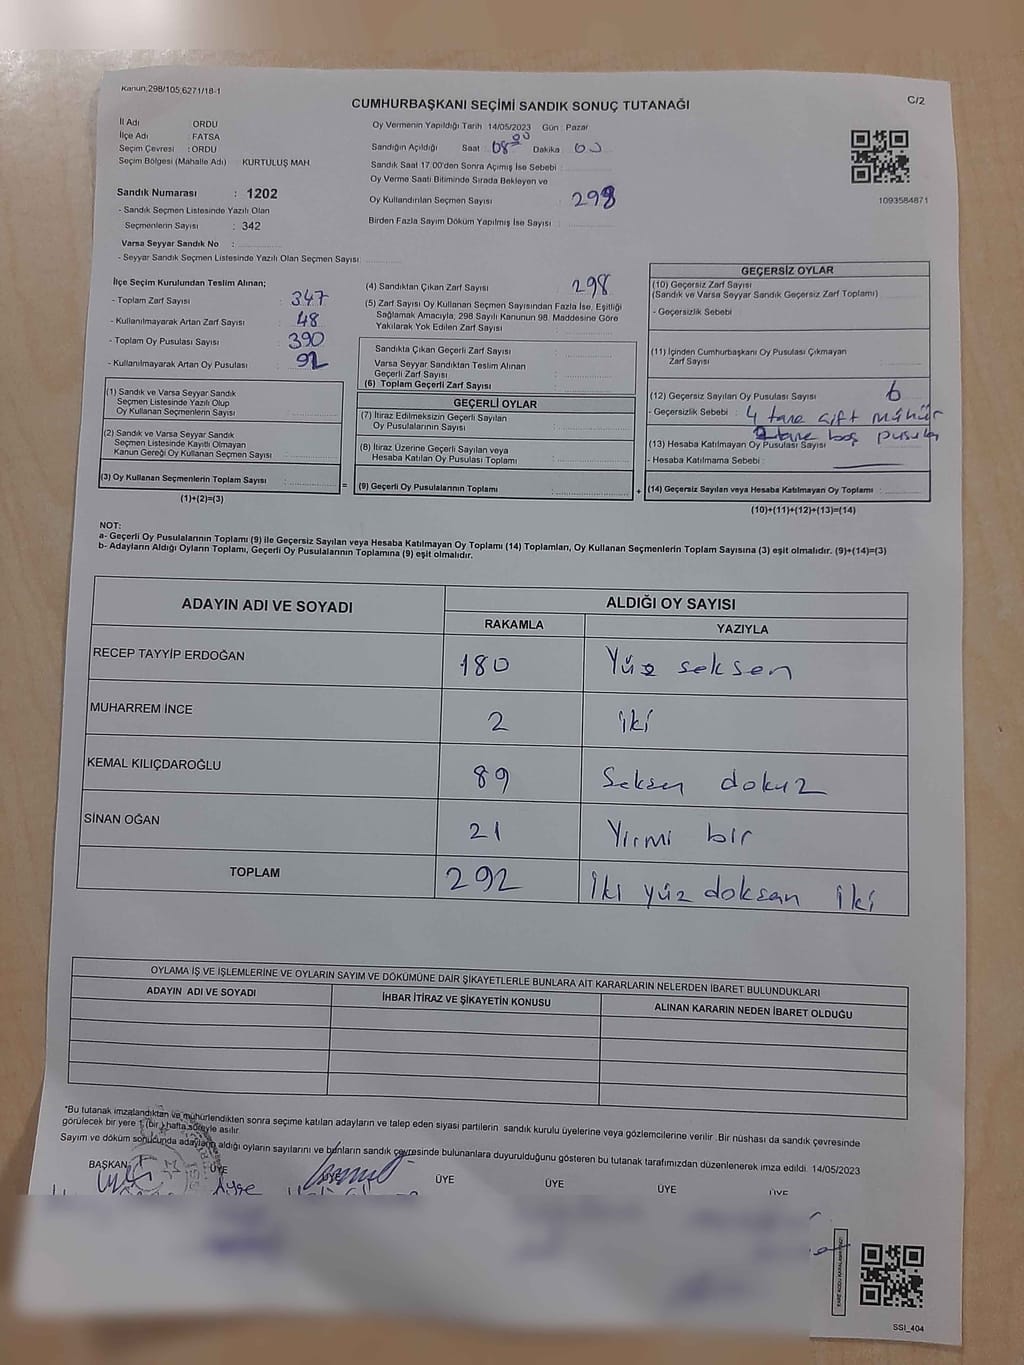 Kanun,298/105,6271/18-1
C/2
CUMHURBAŞKANI SEÇİMİ SANDIK SONUÇ TUTANAĞI
İl Adı : ORDU
İlçe Adı : FATSA
Seçim Çevresi : ORDU
Seçim Bölgesi (Mahalle Adı) KURTULUŞ MAH.
Sandık Numarası : 1202
- Sandık Seçmen Listesinde Yazılı Olan
Seçmenlerin Sayısı : 342
Varsa Seyyar Sandık No :
- Seyyar Sandık Seçmen Listesinde Yazılı Olan Seçmen Sayısı:
Oy Vermenin Yapıldığı Tarih 14/05/2023 Gün : Pazar
Sandığın Açıldığı Saat : 08 00 Dakika : 00
Sandık Saat 17.00'den Sonra Açımış İse Sebebi :
Oy Verme Saati Bitiminde Sırada Bekleyen ve
Oy Kullandırılan Seçmen Sayısı : 298
Birden Fazla Sayım Döküm Yapılmış İse Sayısı :
1093584871
İlçe Seçim Kurulundan Teslim Alınan;
- Toplam Zarf Sayısı : 347
- Kullanılmayarak Artan Zarf Sayısı : 48
- Toplam Oy Pusulası Sayısı : 390
- Kullanılmayarak Artan Oy Pusulası : 92
(1) Sandık ve Varsa Seyyar Sandık
Seçmen Listesinde Yazılı Olup
Oy Kullanan Seçmenlerin Sayısı :
(2) Sandık ve Varsa Seyyar Sandık
Seçmen Listesinde Kayıtlı Olmayan
Kanun Gereği Oy Kullanan Seçmen Sayısı :
(3) Oy Kullanan Seçmenlerin Toplam Sayısı :
(1)+(2)=(3)
(4) Sandıktan Çıkan Zarf Sayısı : 298
(5) Zarf Sayısı Oy Kullanan Seçmen Sayısından Fazla İse, Eşitliği
Sağlamak Amacıyla, 298 Sayılı Kanunun 98. Maddesine Göre
Yakılarak Yok Edilen Zarf Sayısı :
Sandıkta Çıkan Geçerli Zarf Sayısı :
Varsa Seyyar Sandıktan Teslim Alınan
Geçerli Zarf Sayısı :
(6) Toplam Geçerli Zarf Sayısı :
GEÇERLİ OYLAR
(7) İtiraz Edilmeksizin Geçerli Sayılan
Oy Pusulalarının Sayısı :
(8) İtiraz Üzerine Geçerli Sayılan veya
Hesaba Katılan Oy Pusulası Toplamı :
= (9) Geçerli Oy Pusulalarının Toplamı : +
GEÇERSİZ OYLAR
(10) Geçersiz Zarf Sayısı
(Sandık ve Varsa Seyyar Sandık Geçersiz Zarf Toplamı) :
- Geçersizlik Sebebi :
(11) İçinden Cumhurbaşkanı Oy Pusulası Çıkmayan
Zarf Sayısı :
(12) Geçersiz Sayılan Oy Pusulası Sayısı : 6
- Geçersizlik Sebebi : 4 tane çift mühür
2 tane boş pusula
(13) Hesaba Katılmayan Oy Pusulası Sayısı :
- Hesaba Katılmama Sebebi :
(14) Geçersiz Sayılan veya Hesaba Katılmayan Oy Toplamı :
(10)+(11)+(12)+(13)=(14)
NOT:
a- Geçerli Oy Pusulalarının Toplamı (9) ile Geçersiz Sayılan veya Hesaba Katılmayan Oy Toplamı (14) Toplamları, Oy Kullanan Seçmenlerin Toplam Sayısına (3) eşit olmalıdır. (9)+(14)=(3)
b- Adayların Aldığı Oyların Toplamı, Geçerli Oy Pusulalarının Toplamına (9) eşit olmalıdır.
ADAYIN ADI VE SOYADI ALDIĞI OY SAYISI
RAKAMLA YAZIYLA
RECEP TAYYİP ERDOĞAN 180 Yüz seksen
MUHARREM İNCE 2 iki
KEMAL KILIÇDAROĞLU 89 Seksen dokuz
SİNAN OĞAN 21 Yirmi bir
TOPLAM 292 iki yüz doksan iki
OYLAMA İŞ VE İŞLEMLERİNE VE OYLARIN SAYIM VE DÖKÜMÜNE DAİR ŞİKAYETLERLE BUNLARA AİT KARARLARIN NELERDEN İBARET BULUNDUKLARI
ADAYIN ADI VE SOYADI İHBAR İTİRAZ VE ŞİKAYETİN KONUSU ALINAN KARARIN NEDEN İBARET OLDUĞU
*Bu tutanak imzalandıktan ve mühürlendikten sonra seçime katılan adayların ve talep eden siyasi partilerin sandık kurulu üyelerine veya gözlemcilerine verilir .Bir nüshası da sandık çevresinde
görülecek bir yere 1 (bir) hafta süreyle asılır.
Sayım ve döküm sonucunda adayların aldığı oyların sayılarını ve bunların sandık çevresinde bulunanlara duyurulduğunu gösteren bu tutanak tarafımızdan düzenlenerek imza edildi. 14/05/2023
BAŞKAN ÜYE ÜYE ÜYE ÜYE ÜYE ÜYE
Ayşe
SSI_404